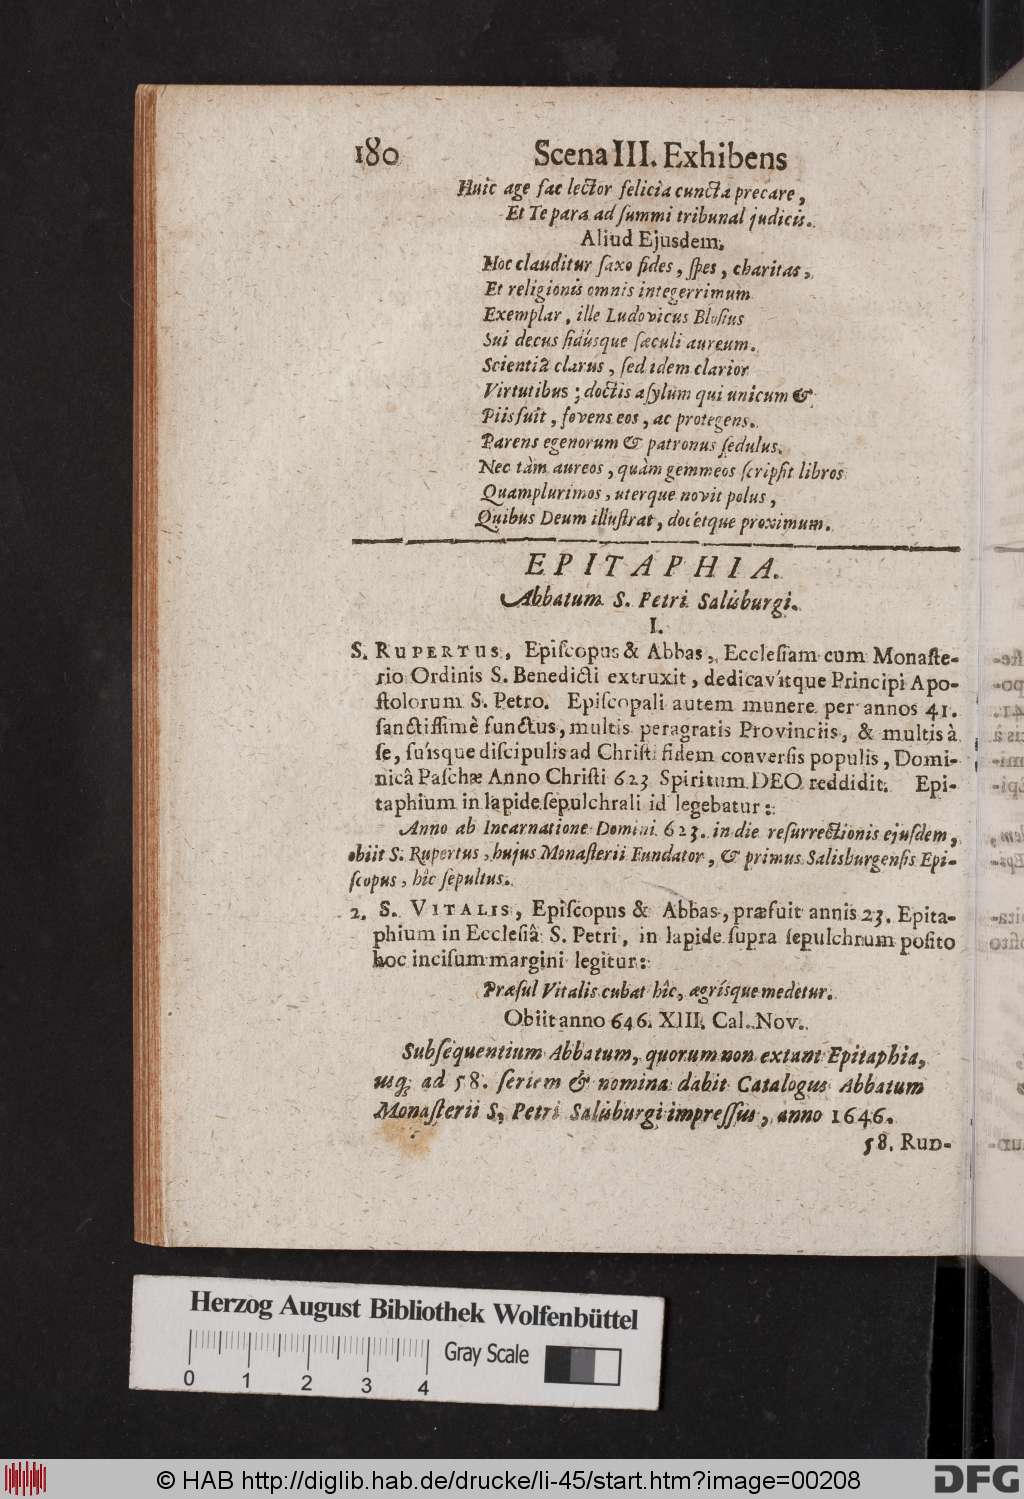 180 Scena III. Exhibens
Huic age fac lector felicia cuncta precare,
Et Te para ad ſummi tribunal judicis.
Aliud Ejusdem.
Hoc clauditur ſaxo fides, ſpes, charitas,
Et religionis omnis integerrimum
Exemplar, ille Ludovicus Bloſius
Sui decus fidúsque ſæculi aureum.
Scientiâ clarus, ſed idem clarior
Virtutibus; doctis aſylum qui unicum &
Piis fuit, fovens eos, ac protegens.
Parens egenorum & patronus ſedulus.
Nec tàm aureos, quàm gemmeos ſcripſit libros
Quamplurimos, uterque novit polus,
Quibus Deum illuſtrat, docetque proximum.
EPITAPHIA.
Abbatum S. Petri Salisburgi.
I.
S. RUPERTUS, Epiſcopus & Abbas, Eccleſiam cum Monaſte-
rio Ordinis S. Benedicti extruxit, dedicavítque Principi Apo-
ſtolorum S. Petro. Epiſcopali autem munere per annos 41.
ſanctiſſimè functus, multis peragratis Provinciis, & multis à
ſe, ſuísque diſcipulis ad Chriſti fidem converſis populis, Domi-
nicâ Paſchæ Anno Chriſti 623 Spiritum DEO reddidit. Epi-
taphium in lapide ſepulchrali id legebatur:
Anno ab Incarnatione Domini 623. in die reſurrectionis ejuſdem,
obiit S. Rupertus, hujus Monaſterii Fundator, & primus Salisburgenſis Epi-
ſcopus, hîc ſepultus.
2. S. VITALIS, Epiſcopus & Abbas, præfuit annis 23. Epita-
phium in Eccleſiâ S. Petri, in lapide ſupra ſepulchrum poſito
hoc inciſum margini legitur:
Præſul Vitalis cubat hîc, ægrísque medetur.
Obiit anno 646. XIII. Cal. Nov.
Subſequentium Abbatum, quorum non extant Epitaphia,
usq; ad 58. ſeriem & nomina dabit Catalogus Abbatum
Monaſterii S. Petri Salisburgi impreſſus, anno 1646.
58. RUD-
Herzog August Bibliothek Wolfenbüttel
Gray Scale
0 1 2 3 4
© HAB http://diglib.hab.de/drucke/li-45/start.htm?image=00208
DFG